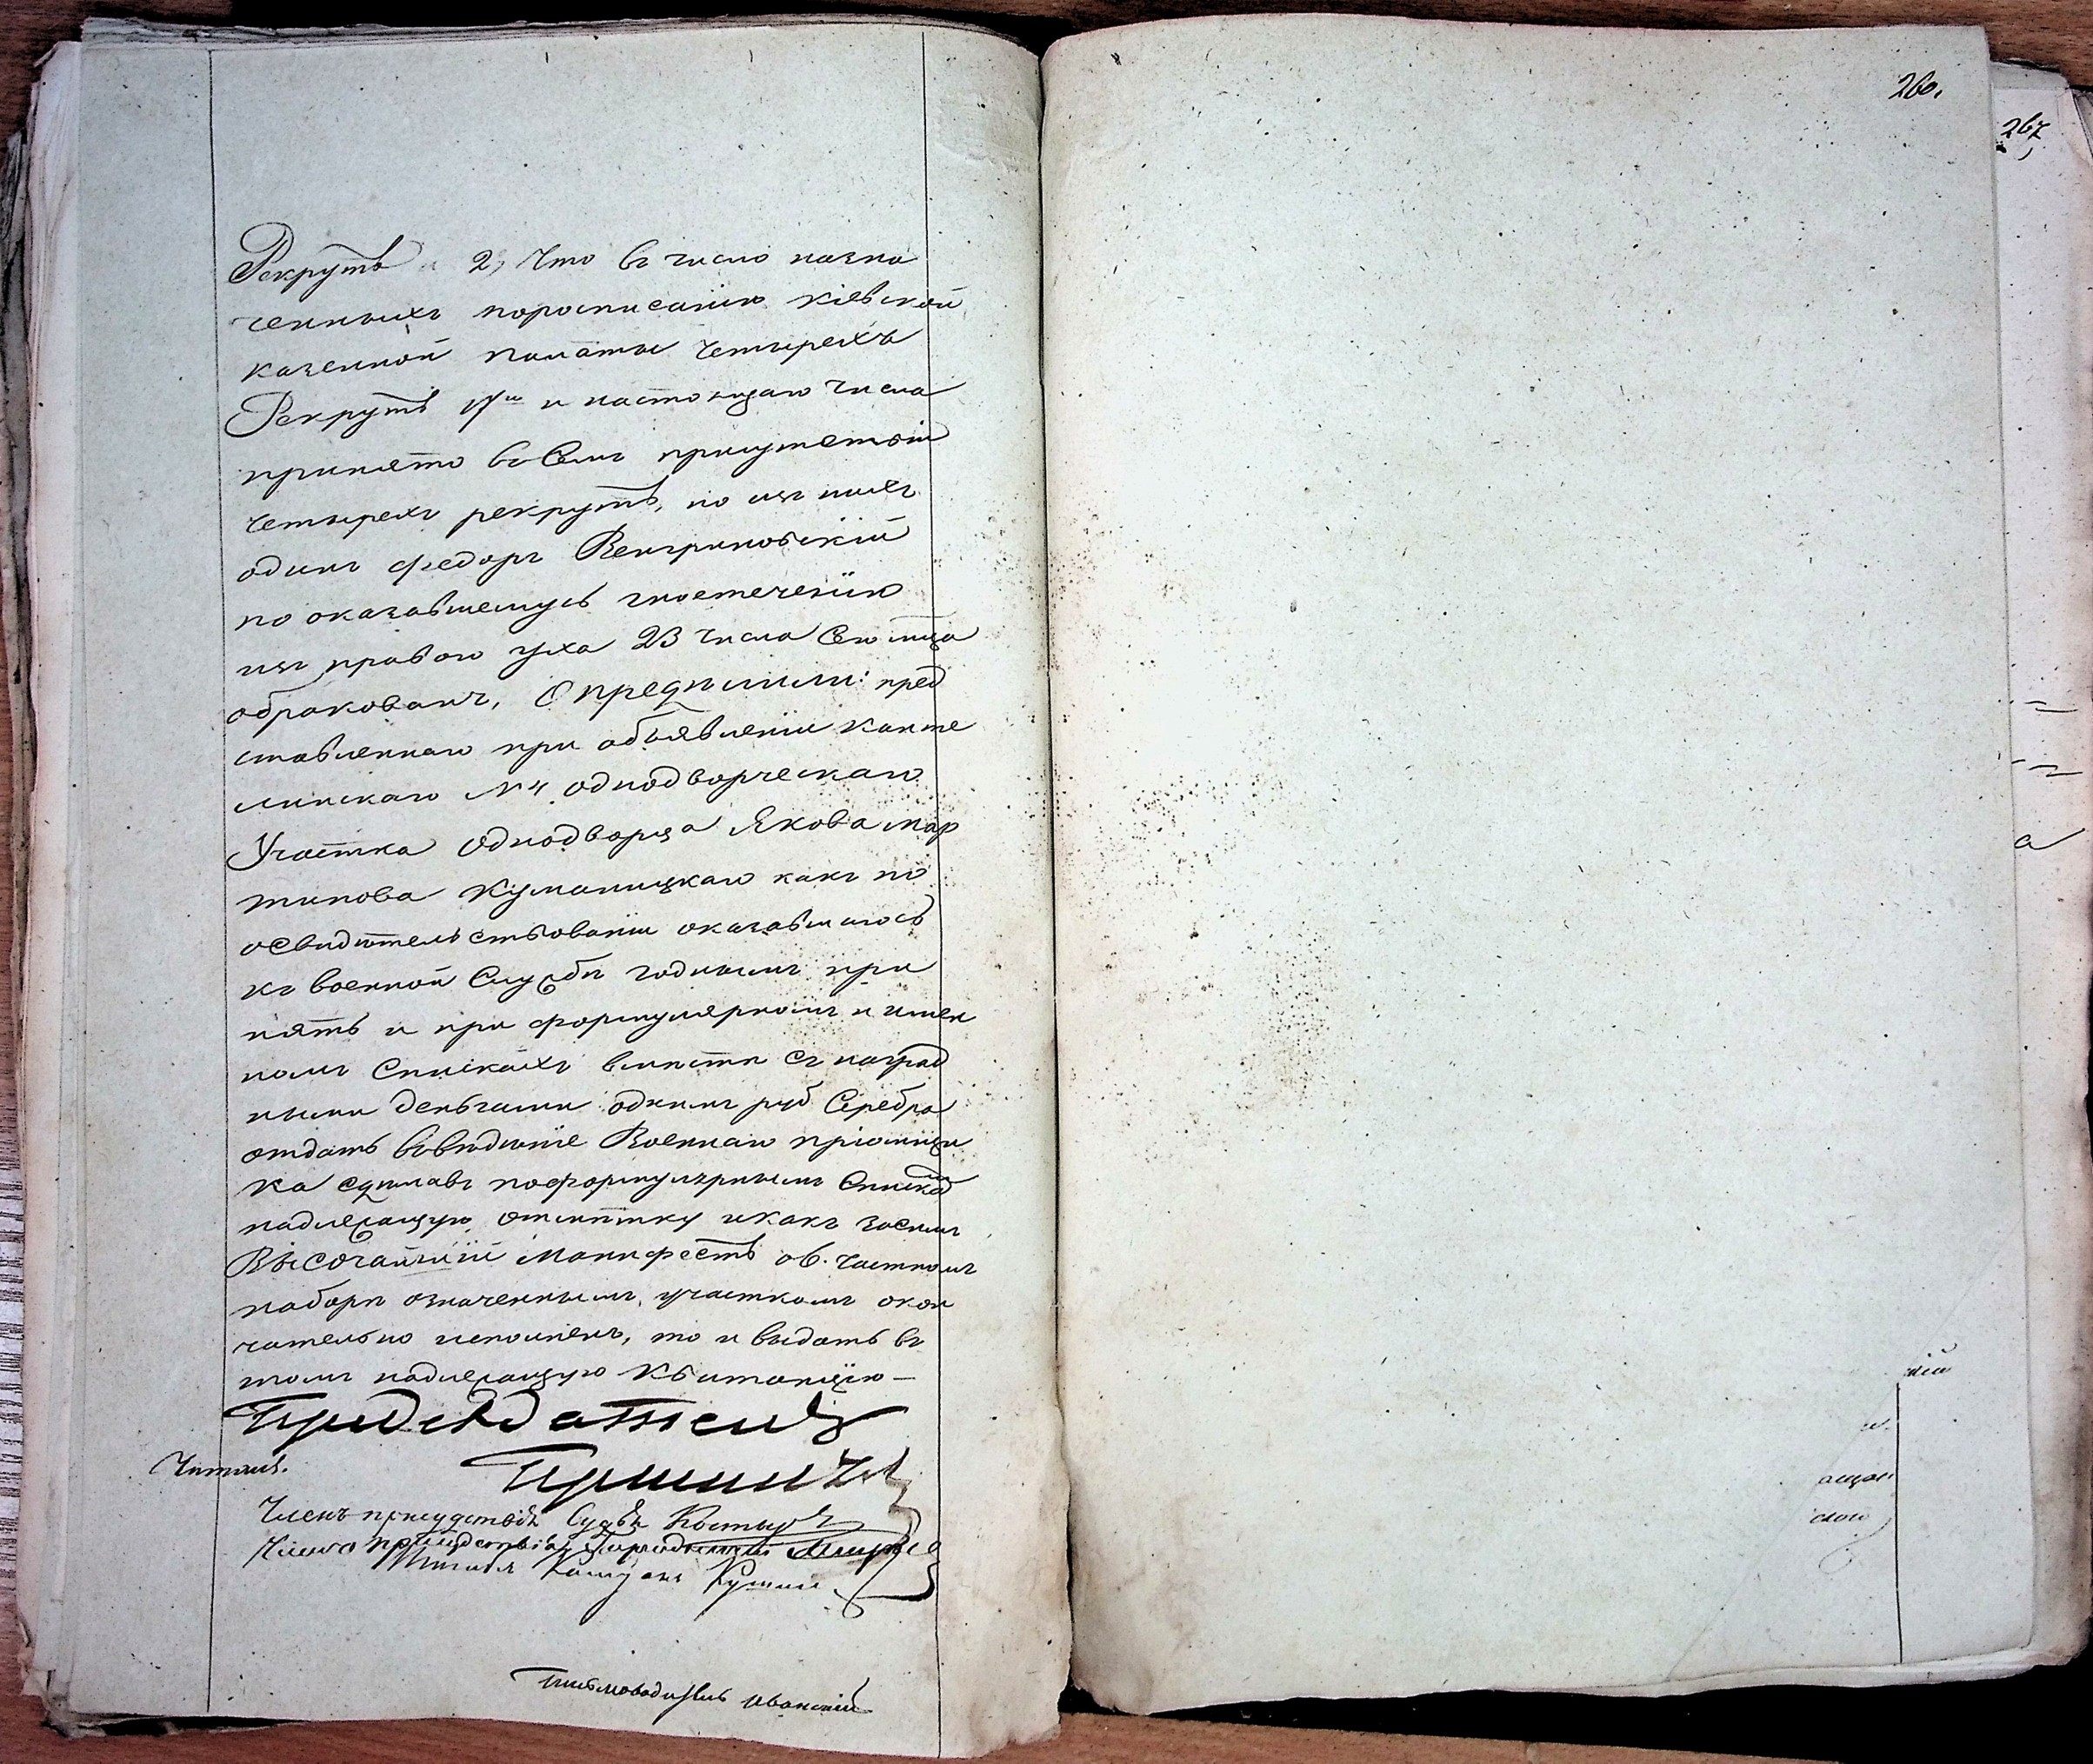 260.
267
Рекрутъ и 2, Что въ число назна
ченныхъ поросписанію Кіевской
казенной палаты четырехъ
Рекрутъ 17го и настоящаго числа
принято въ Семъ присутствіи
четырехъ рекрутъ, но изъ нихъ
одинъ Федоръ Венгриновскій
по оказавшемусь гноетеченію
изъ праваго уха 23 числа Сего мца
обракованъ, Определили: пред
ставленнаго при объявленіи Канте
линскаго № 4 однодворческаго
Участка Однодворца Якова Мар
тинова Куманицкаго какъ по
освидѣтельствованіи оказавшагось
къ военной Службѣ годнымъ при
нять и при формулярномъ и имен
номъ Спискахъ вмѣстѣ съ наград
ными деньгами однимъ руб Серебра
отдать въвѣдѣніе Военнаго пріемщи
ка сдѣлавъ поформулярнымъ Списка
надлежащую отмѣтку икакъ засимъ
Высочайшій Манифестъ об. частномъ
наборѣ означеннымъ участкомъ окон
чательно исполненъ, то и выдать въ
томъ надлежащую Квитанцію —
Председатель
Читалъ.
Членъ присудствія Судья
Членъ присудствія
Письмоводитель Иванскій
кій